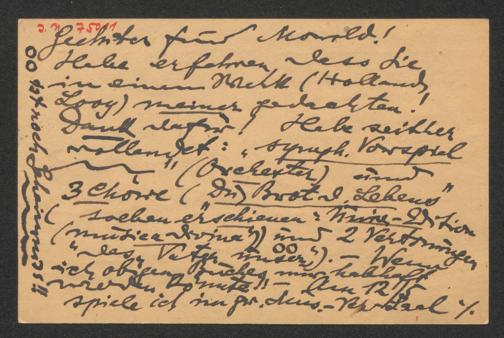 J. N. 75011
Geehrter Freund Morold!
Habe erfahren, dass Sie
in einem Werk (Hollands
Looy) meiner gedachten!
Dank dafür! Habe seither
vollendet: "symph. Vorspiel"
(Orchester) und
3 Chöre ("Du Brot d. Lebens"
(soeben erschienen: Univ.-Edition
(musica divina)) und 2 Vertonungen
"des Vater unser"). – Wenn
ich obigen Buches nur habhaft
werden könnte! – Am 12.
spiele ich im gr. Mus.-Ver. Saal ./.
ist noch